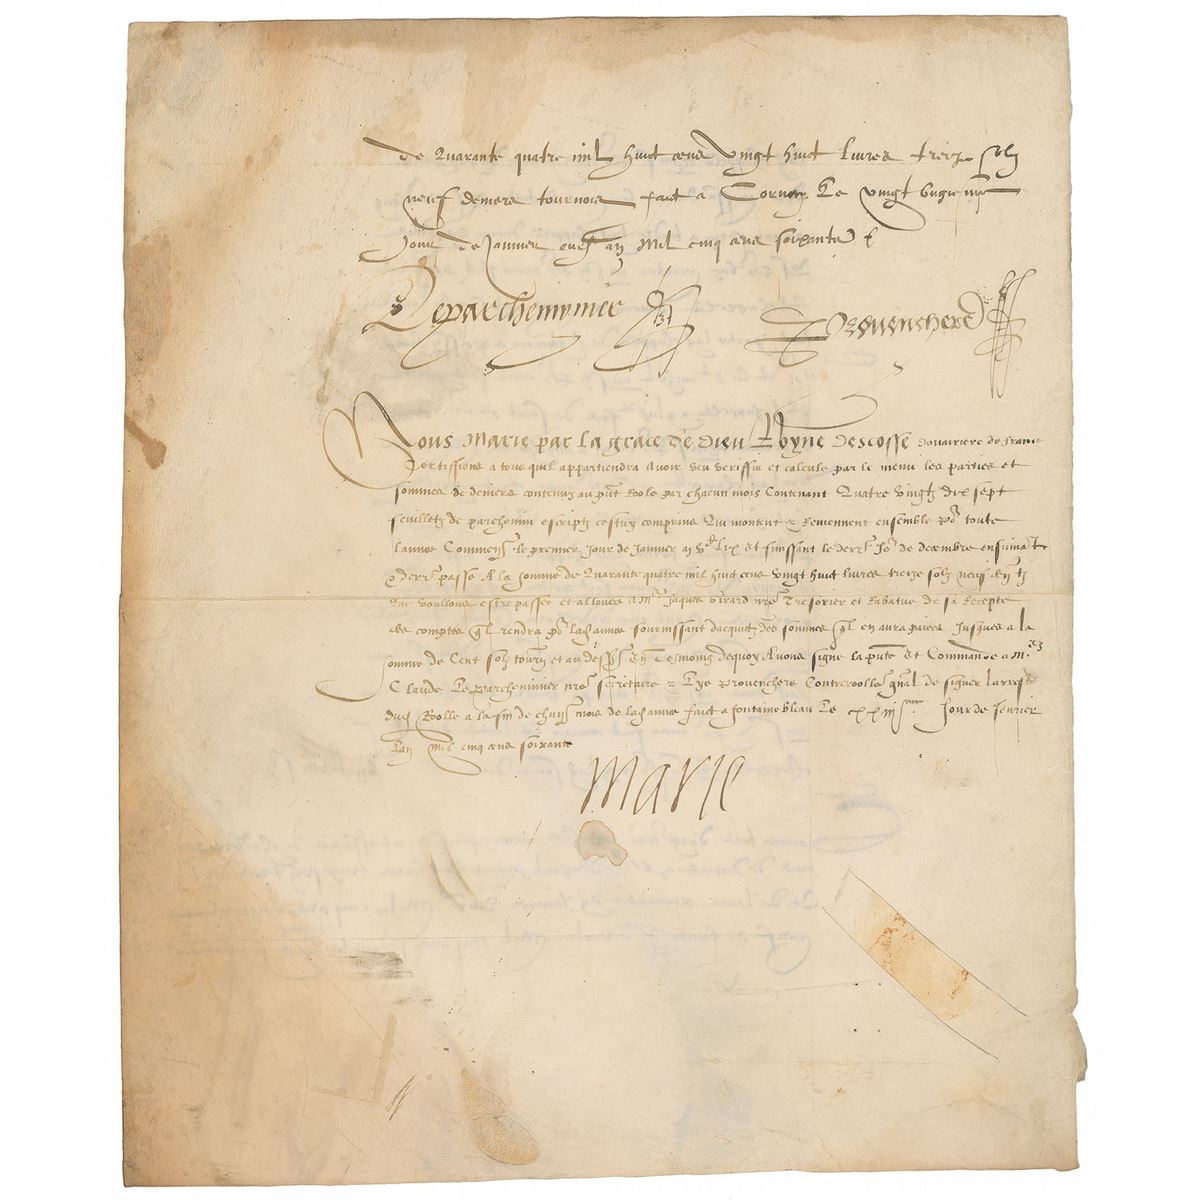 de Quarante quatre mil huict cens vingt huict livres treize solz
neuf deniers tournois faict a le vingt
Jour de Janvier mil cinq cens soixante
Leparcheminier
Provenchere
Nous Marie par la grace de dieu Royne descosse douairiere de france
Certiffions a tous quil appartiendra avoir veu veriffie et calcule par le menu les parties et
sommes de deniers contenuz au pnt Rolle par chacun mois Contenant Quatre vingtz dix sept
feuilletz de parchemin escriptz cestuy comprins Qui montent & Reviennent ensemble po toute
lannee Commenc le premier Jour de Janvier et finissant le derr Jo de decembre ensuivat
& derr passe A la somme de Quarante quatre mil huict cens vingt huict livres treize solz neuf
Que voullons estre passee et allouee a Me Jaques Girard nre Tresorier et Rabatue de sa Recepte
des comptes ql rendra po lad annee fournissant dacquictz des sommes ql en aura paiees Jusques a la
somme de Cent solz tourn et au dess En Tesmoing dequoy Avons signe la pnte et Commande a Me
Claude Leparcheminier nre secretaire & Provenchere Contrerolle gnal de signer larrest
dud Rolle a la fin de chun mois de lad annee faict a fontainebleau Le xxiii Jour de fevrier
Lan mil cinq cens soixante
Marie